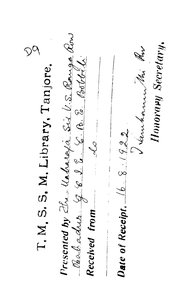 T. M. S. S. M. Library, Tanjore.
Presented by The Maharaja Sir V. S. Ranga Row
Bahadur G C I E. C. B. E Bobbili
Received from do
Date of Receipt. 16. 8. 1922
Honorary Secretary.